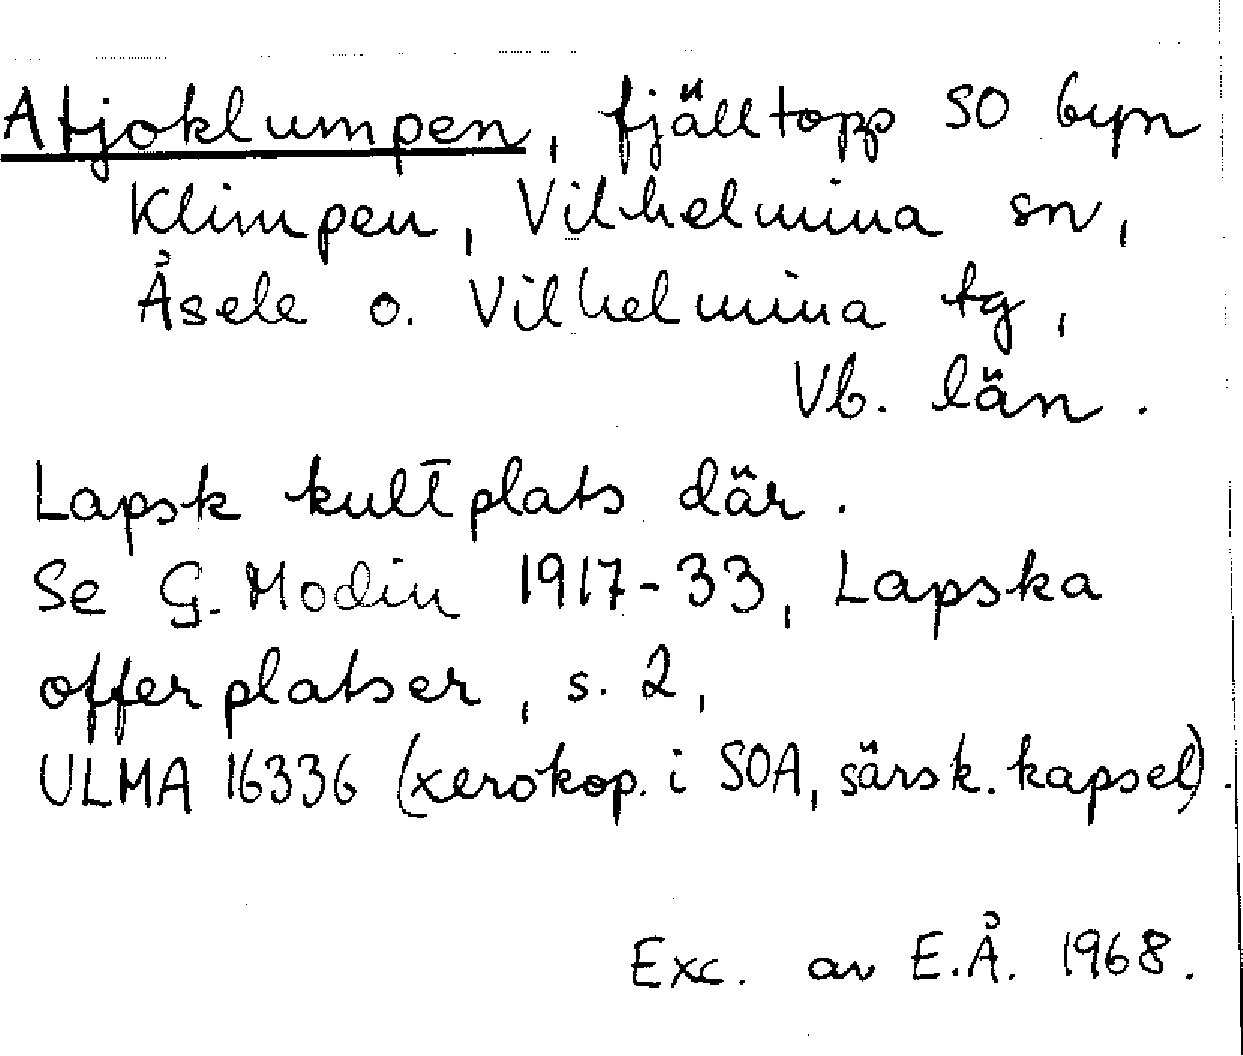 Atjoklumpen, fjälltopp SO byn
Klimpen, Vilhelmina sn,
Åsele o. Vilhelmina tg,
Vb. län.
Lapsk kultplats där.
Se G. Modin 1917-33, Lapska
offerplatser, s. 2,
ULMA 16336 (xerokop. i SOA, särsk. kapsel).
Exc. av E.Å. 1968.